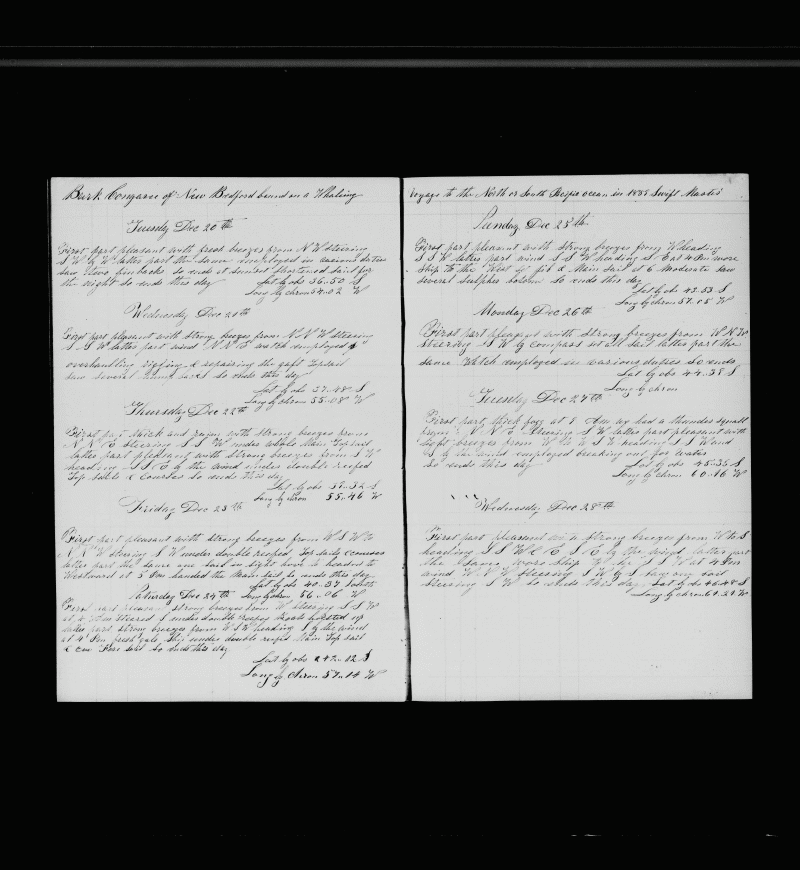 Bark Congaree of New Bedford bound on a Whaling
Tuesday Dec 20th
First part pleasant with fresh breezes from N W steering
S W by W latter part the same employed in various duties
saw some finbacks so ends at sunset shortened sail for
the night so ends this day Lat by obs 36..50 S
Long by chron 54..02 W
Wednesday Dec 20th
First part pleasant with strong breezes from N N W steering
S S W latter part wind N N E watch employed
overhauling & repairing the gaff Topsail
saw several so ends this day
Lat by obs 37..48 S
Long by chron 55..08 W
Thursday Dec 22th
First part thick and with strong breezes from
N N E steering S S W under whole Main Top sail
latter part pleasant with strong breezes from S W
heading S S E by the wind under double reefed
Top sails & Courses so ends this day
Lat by obs 39..32 S
Long by chron 55..46 W
Friday Dec 23th
First part pleasant with strong breezes from W S W to
N N W steering S W under double reefed Top sails & courses
latter part the same one sail in sight bore headed to
Westward at 5 Pm handed the Main sail so ends this day
Lat by obs 40..37 South
Saturday Dec 24th Long by chron 56..06 W
First part pleasant strong breezes from W steering S S W
at Pm steered S under double reefed
latter part strong breezes from W S W heading S by the wind
at 4 Pm fresh gale Ship under double reefed Main Top sail
& Fore sail so ends this day
Lat by obs 42..02 S
Long by Chron 57..14 W
Voyage to the North or South Pacific ocean in 1885 Swift Master
Sunday Dec 25th
First part pleasant with strong breezes from W heading
S S W latter part wind S S W heading S E at 4 Pm wore
Ship to the West Main sail at 6 Moderate saw
several sulpher bottom so ends this day
Lat by obs 43..53 S
Long by chron 57..05 W
Monday Dec 26th
First part pleasant with strong breezes from W N W
steering S W by Compass set all sail latter part the
same Watch employed in various duties so ends
Lat by obs 44..38 S
Long by chron
Tuesday Dec 27th
First part thick fog at 9 Am we had a thunder squall
from N N E steering S W latter part pleasant with
light breezes from W to W S W heading S S W and
S by the wind employed breaking out for water
so ends this day Lat by obs 45..35 S
Long by chron 60..16 W
Wednesday Dec 28th
First part pleasant with strong breezes from W to S
heading S S W & E S E by the wind latter part
the same wore Ship W by S S W at 4 Pm
wind W N W steering S W by S saw one sail
steering S W so ends this day Lat by obs 46..48 S
Long by chron 61..21 W